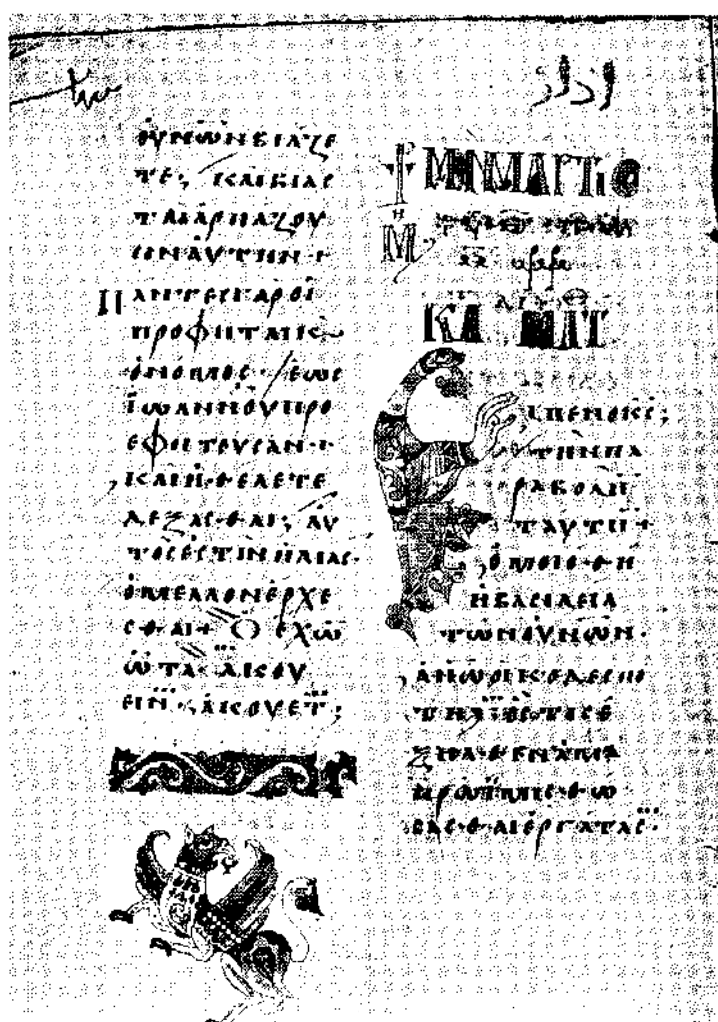 ΟΥΝΩΝΒΙΑΖΕ
ΤΕ, ΚΑΙΒΙΑΣ
ΤΑΙΑΡΠΑΖΟΥ
ΣΙΝΑΥΤΗΝ·
ΠΑΝΤΕΣΓΑΡΟΙ
ΠΡΟΦΗΤΑΙΚ
ΟΝΟΜΟΣ· ΕΩΣ
ΙΩΑΝΝΟΥΠΡΟ
ΕΦΗΤΕΥΣΑΝ·
ΚΑΙΗΘΕΛΕΤΕ
ΔΕΞΑΣΘΑΙ, ΑΥ
ΤΟΣΕΣΤΙΝΗΛΙΑΣ·
ΟΜΕΛΛΟΝΕΡΧΕ
ΣΘΑΙ+ Ο ΕΧΩ
ΩΤΑ ΑΚΟΥ
ΕΙΝ· ΑΚΟΥΕΤ:
ΜΑΡΤΙΟ
ΚΑ ΜΑΤ
ΕΙΠΕΝΟΚΣ,
ΤΗΝΠΑ
ΡΑΒΟΛΗ
ΤΑΥΤΗ·
ΟΜΟΙΩΘΗ
ΗΒΑΣΙΛΕΙΑ
ΤΩΝΟΥΝΩΝ·
ΑΝΩΟΙΚΟΔΕΣΠΟ
ΤΗ ΟΣΤΙΣΕ
ΞΗΛΘΕΝΑΜΑ
ΠΡΩΙΜΙΣΘΩ
ΣΑΣΘΑΙΕΡΓΑΤΑΣ·